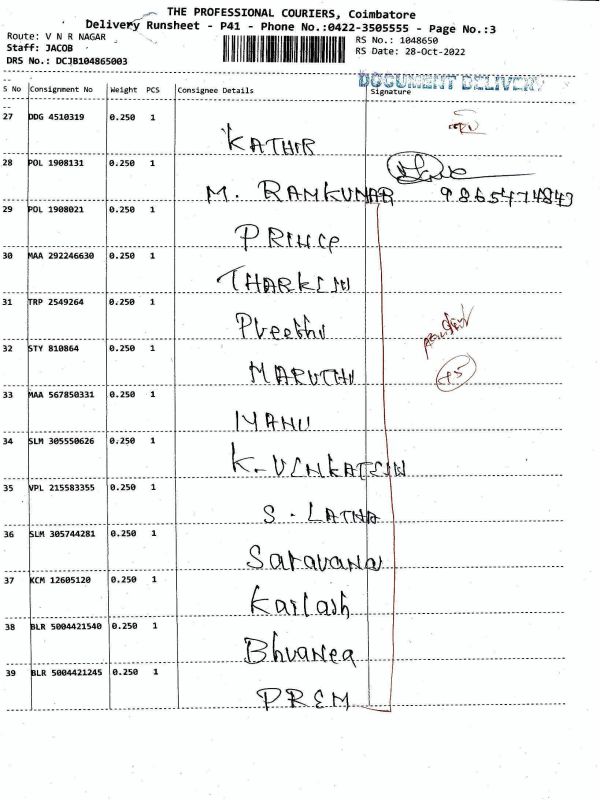 THE PROFESSIONAL COURIERS, Coimbatore
Delivery Runsheet - P41 - Phone No.:0422-3505555 - Page No.:3
Route: V N R NAGAR
RS No.: 1048650
Staff: JACOB
RS Date: 28-Oct-2022
DRS No.: DCJB104865003
DOCUMENT DELIVERY
S No Consignment No Weight PCS Consignee Details Signature
27 DDG 4510319 0.250 1
KATHIR
28 POL 1908131 0.250 1
M. RAMKUMAR 9865474843
29 POL 1908021 0.250 1
PRINCE
30 MAA 292246630 0.250 1
31 TRP 2549264 0.250 1
Preethi
32 STY 810864 0.250 1
MARUTHU
33 MAA 567850331 0.250 1
34 SLM 305550626 0.250 1
35 VPL 215583355 0.250 1
S. LATHA
36 SLM 305744281 0.250 1
Saravana
37 KCM 12605120 0.250 1
Kailash
38 BLR 5004421540 0.250 1
39 BLR 5004421245 0.250 1
PREM